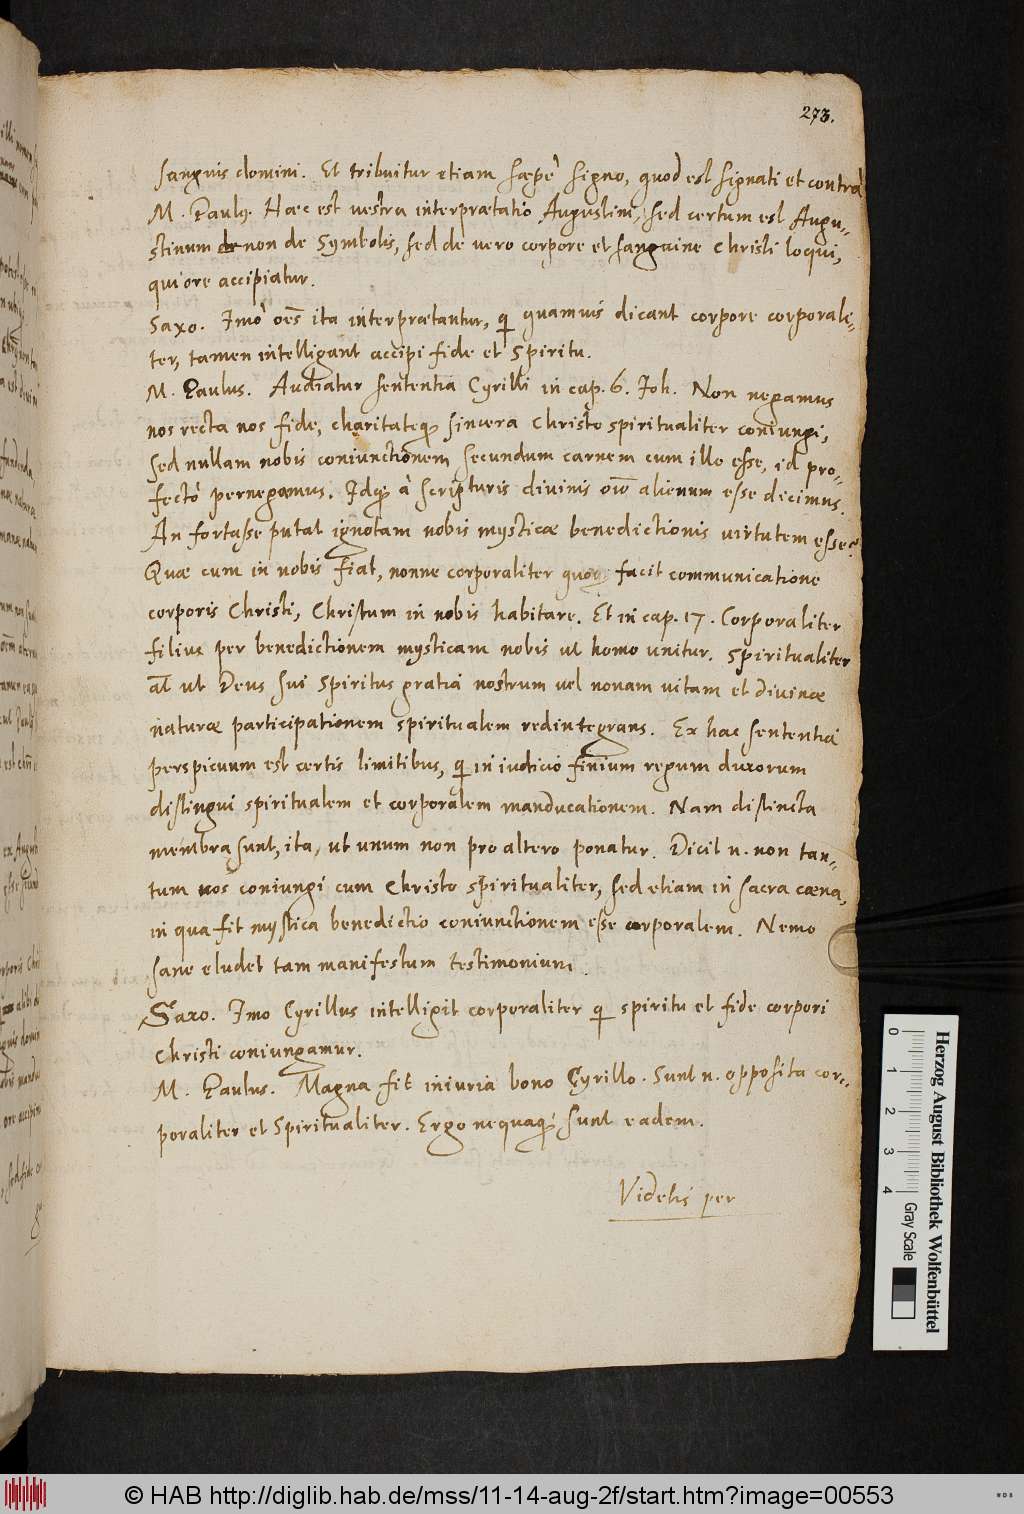 273.
sanguis domini. Et tribuitur etiam sæpè signo, quod est signati et contrà
M. Paulꝰ. Hæc est vestra interprætatio Augustini, sed certum est Augu-
stinum de non de Symbolis, sed de vero corpore et sanguine Christi loqui,
qui ore accipiatur.
Saxo. Imò oēs ita interprætantur, q̨ quamuis dicant corpore corporali-
ter, tamen intelligant accipi fide et Spiritu.
M. Paulus. Audiatur sententia Cyrilli in cap. 6. Joh. Non negamus
nos recta nos fide, charitateq̨ sincera Christo spiritualiter coniungi,
sed nullam nobis coniunctionem secundum carnem cum illo esse, id pro-
fectò pernegamus. Idq̨ à scripturis divinis oīo alienum esse dicimus.
An fortasse putat ignotam nobis mysticæ benedictionis virtutem esse?
Quæ cum in nobis fiat, nonne corporaliter quoq̨ facit communicatione
corporis Christi, Christum in nobis habitare. Et in cap. 17. Corporaliter
filius per benedictionem mysticam nobis ut homo unitur. Spiritualiter
aūt ut Deus sui Spiritus gratiâ nostrum vel novam vitam et divinæ
naturæ participationem spiritualem redintegrans. Ex hac sententiâ
perspicuum est certis limitibus, q̨ in iudicio finium regum duxorum
distingui spiritualem et corporalem manducationem. Nam distincta
membra sunt, ita, ut unum non pro altero ponatur. Dicit n. non tan-
tum nos coniungi cum Christo spiritualiter, sed etiam in sacra cæna,
in qua fit mystica benedictio coniunctionem esse corporalem. Nemo
sane eludet tam manifestum testimonium.
Saxo. Imo Cyrillus intelligit corporaliter q̨ spiritu et fide corpori
Christi coniungamur.
M. Paulus. Magna fit iniuria bono Cyrillo. Sunt n. opposita cor-
poraliter et Spiritualiter. Ergo nequaq̨ sunt eadem.
Videtis per
Herzog August Bibliothek Wolfenbüttel
0 1 2 3 4
Gray Scale
© HAB http://diglib.hab.de/mss/11-14-aug-2f/start.htm?image=00553